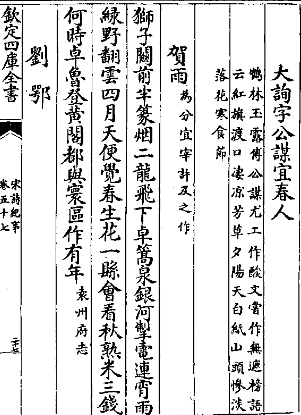 大詢字公謀宜春人
鶴林玉露傅公謀尤工作酸文嘗作無遮榜語
云紅旗渡口淒凉芳草夕陽天白紙山頭慘淡
落花寒食節
賀雨為分宜宰許及之作
獅子闕前半篆烟二龍飛下卓篙泉銀河掣電連霄雨
綠野翻雲四月天便覺春生花一縣會看秋熟米三錢
何時卓魯登黃閣都與寰區作有年袁州府志
劉鄂
欽定四庫全書
宋詩紀事
卷五十七